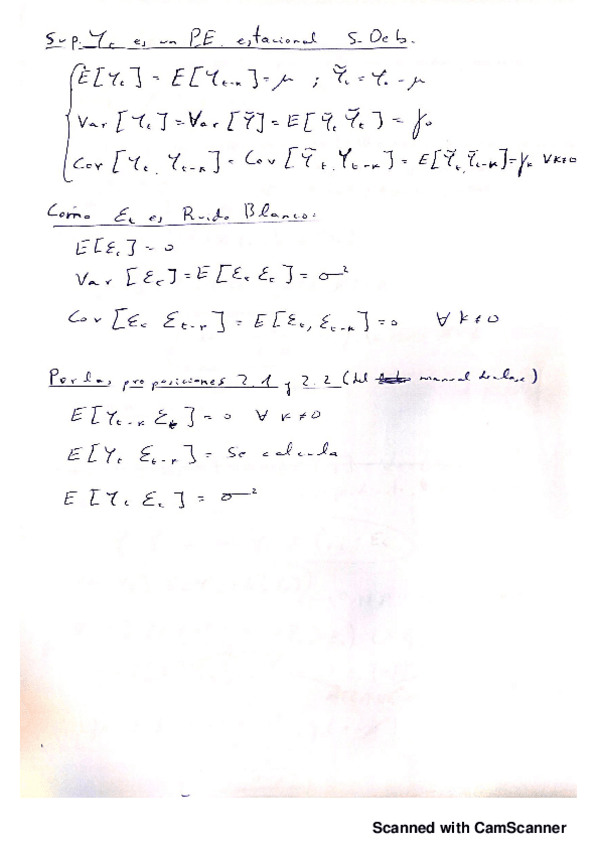 Sup. Y_t es un P.E. estacional S. Deb.
E[Y_t] = E[Y_{t-k}] = μ ; Ỹ_t = Y_t - μ
Var[Y_t] = Var[Ỹ] = E[Ỹ_t Ỹ_t] = γ_0
Cov[Y_t, Y_{t-k}] = Cov[Ỹ_t, Y_{t-k}] = E[Ỹ_t, Ỹ_{t-k}] = γ_k ∀k≠0
Como ε_t es Ruido Blanco:
E[ε_t] = 0
Var[ε_t] = E[ε_t ε_t] = σ²
Cov[ε_t ε_{t-k}] = E[ε_t, ε_{t-k}] = 0 ∀ k≠0
Por las proposiciones 2.1 y 2.2 (del manual de clase)
E[Y_{t-k} ε_t] = 0 ∀ k≠0
E[Y_t ε_{t-k}] = Se calcula
E[Y_t ε_t] = σ²
Scanned with CamScanner